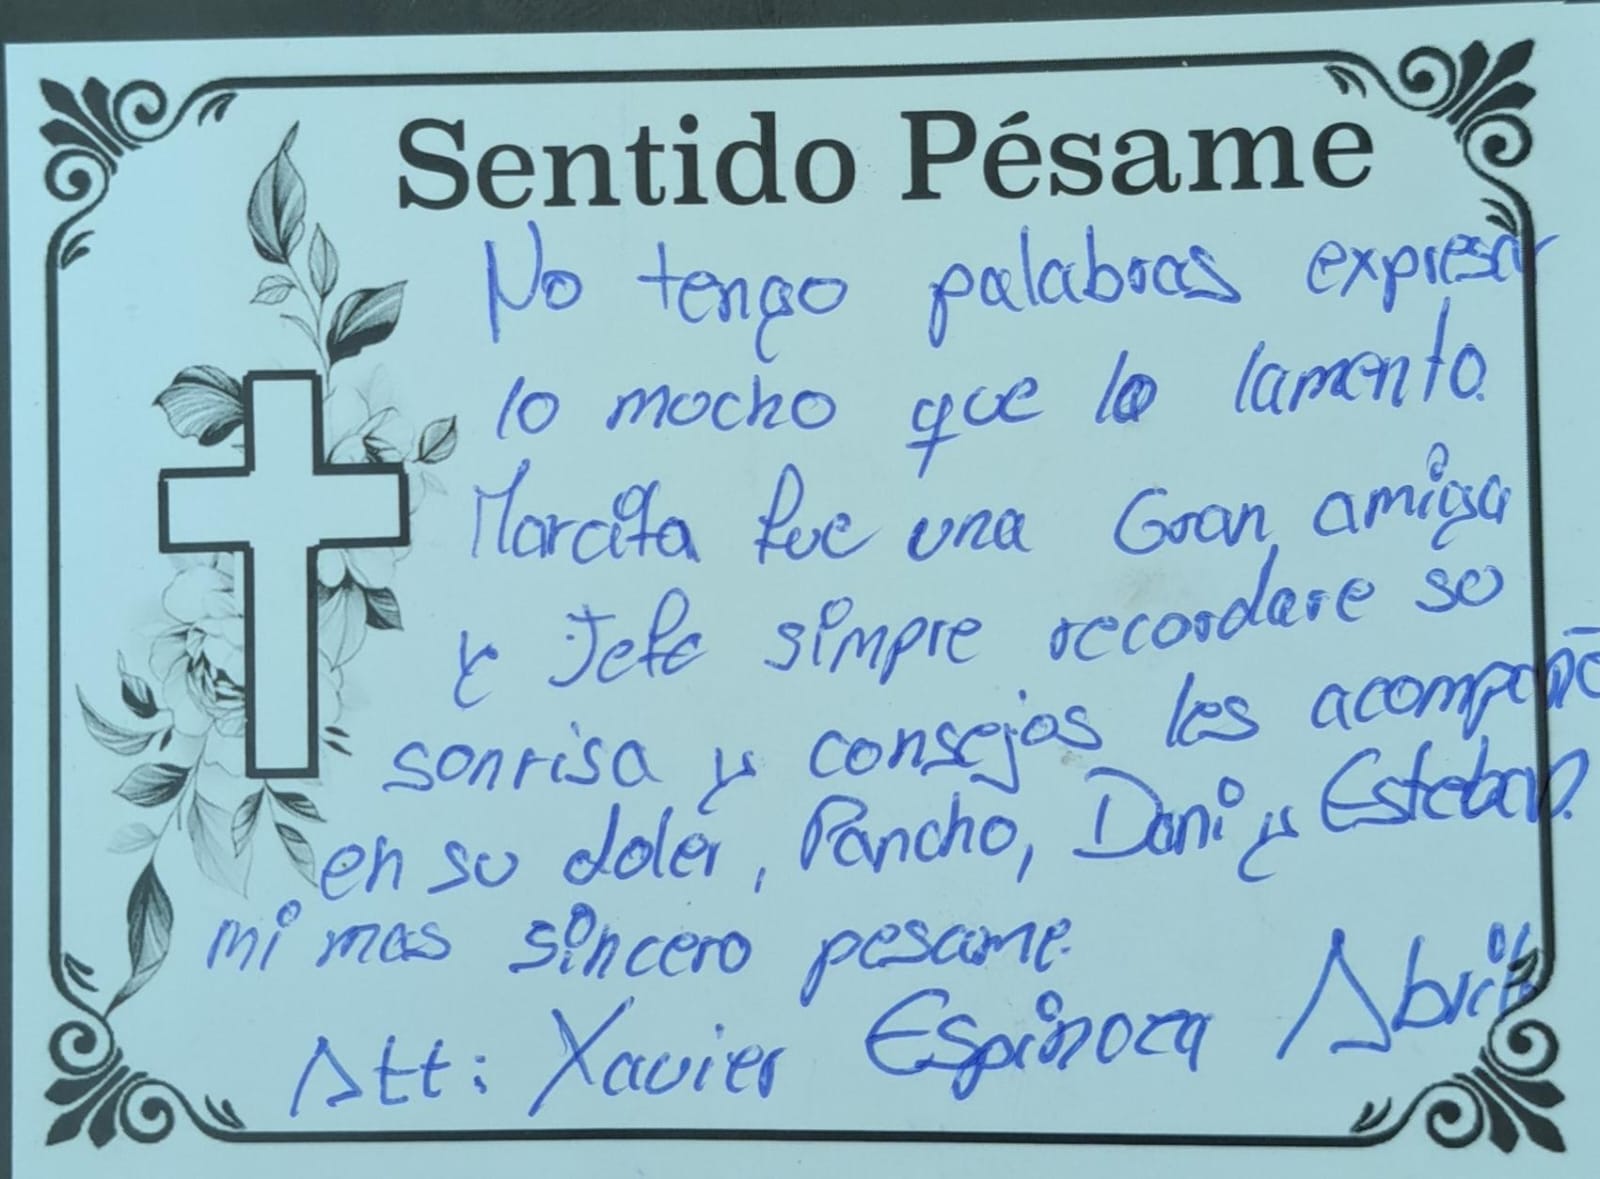 Sentido Pésame
No tengo palabras expresar
lo mucho que lo lamento.
Marcita fue una Gran amiga
y Jefe simpre recordare su
sonrisa y consejos les acompaño
en su doler, Pancho, Dani y Esteban.
mi mas sincero pesame.
Att: Xavier Espinoza Abril